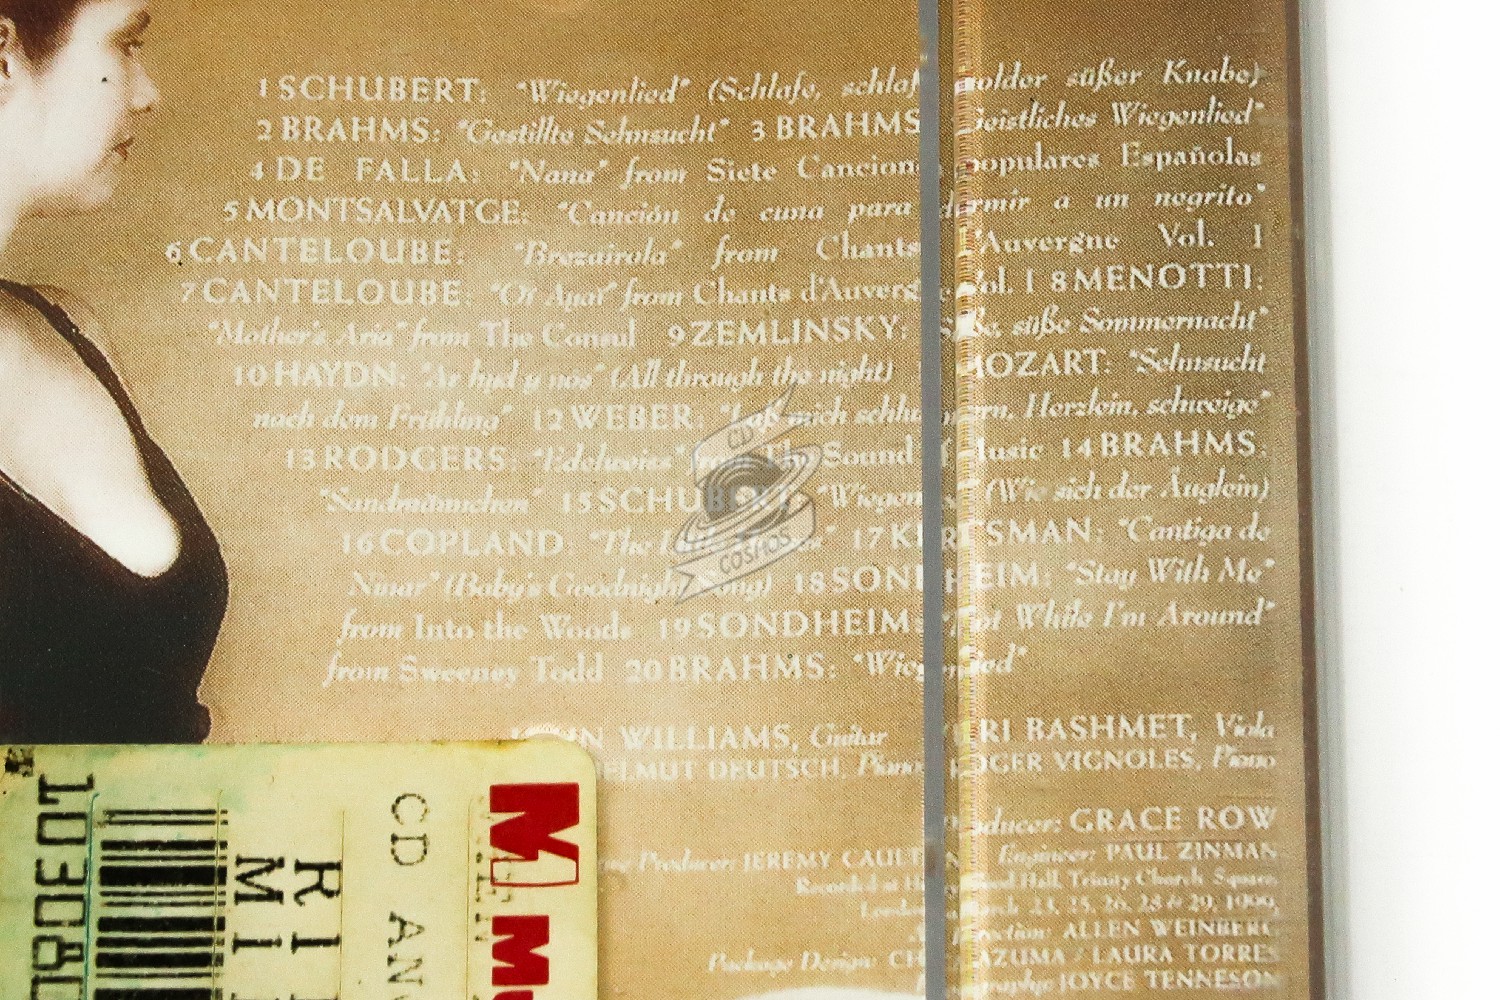 1 SCHUBERT: "Wiegenlied" (Schlafe, schlafe holder süßer Knabe)
2 BRAHMS: "Gestillte Sehnsucht" 3 BRAHMS Geistliches Wiegenlied"
4 DE FALLA: "Nana" from Siete Canciones populares Españolas
5 MONTSALVATGE: "Canción de cuna para dormir a un negrito"
6 CANTELOUBE: "Brezairola" from Chants d'Auvergne Vol. 1
7 CANTELOUBE: from Chants d'Auvergne Vol. 1 8 MENOTTI:
"Mother's Aria" from The Consul 9 ZEMLINSKY: Süße, süße Sommernacht"
10 HAYDN: "Ar hyd y nos" (All through the night) MOZART: "Sehnsucht
nach dem Frühling" 12 WEBER: "Laß mich schlummern, Herzlein, schweige"
13 RODGERS: "Edelweiss" from The Sound of Music 14 BRAHMS:
"Sandmännchen" 15 SCHUBERT: (Wie sich der Äuglein)
16 COPLAND: "The 17 "Cantiga de
Ninar" (Baby's Goodnight Song) 18 SONDHEIM: "Stay With Me"
from Into the Woods 19 SONDHEIM: "Not While I'm Around"
from Sweeney Todd 20 BRAHMS: "Wiegenlied"
JOHN WILLIAMS, Guitar YURI BASHMET, Viola
HELMUT DEUTSCH, Piano ROGER VIGNOLES, Piano
Producer: GRACE ROW
Producer: JEREMY CAULTON Engineer: PAUL ZINMAN
Recorded at Henry Wood Hall, Trinity Church Square,
London, March 23, 25, 26, 28 & 29, 1999,
Art Direction: ALLEN WEINBERG
Package Design: AZUMA / LAURA TORRES
JOYCE TENNESON
CD
COSMOS
CD AN